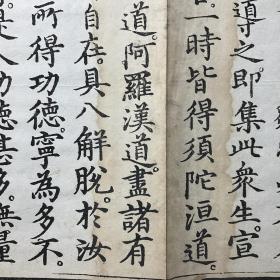 導之即集此衆生宣
一時皆得須陀洹道。
道。阿羅漢道。盡諸有
自在。具八解脫。於汝
所得功德。寧為多不。
人功德甚多。無量